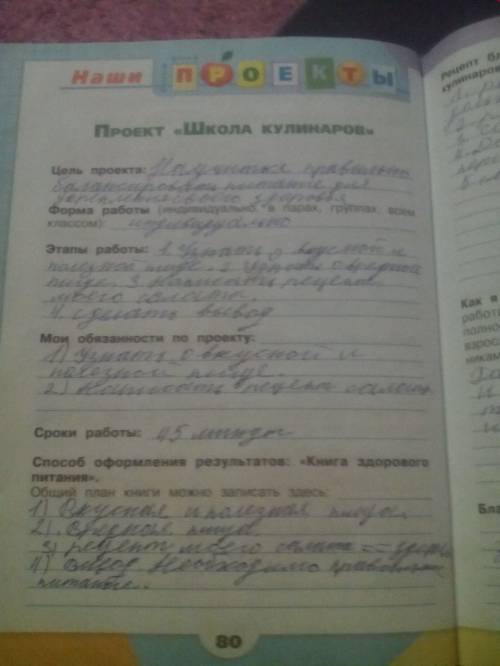 Наши ПРОЕКТЫ
ПРОЕКТ «ШКОЛА КУЛИНАРОВ»
Цель проекта: Научиться правильно
питание для
здоровья
Форма работы (индивидуально, в парах, группах, всем
классом): индивидуально
Этапы работы: 1. Узнать о вкусной и
полезной пище. 2. Узнать о вредной
пище. 3. Написать рецепт
моего салата.
4. сделать вывод
Мои обязанности по проекту:
1) Узнать о вкусной и
полезной пище.
2) Написать рецепт салата
Сроки работы: 45 минут
Способ оформления результатов: «Книга здорового
питания».
Общий план книги можно записать здесь:
1) Вкусная и полезная пища.
2) Вредная пища.
3) рецепт моего салата =
4) вывод Необходимо
питание.
80
Рецепт бл
кулинаров
Как я
работа
полно
взрос
никам
Бла